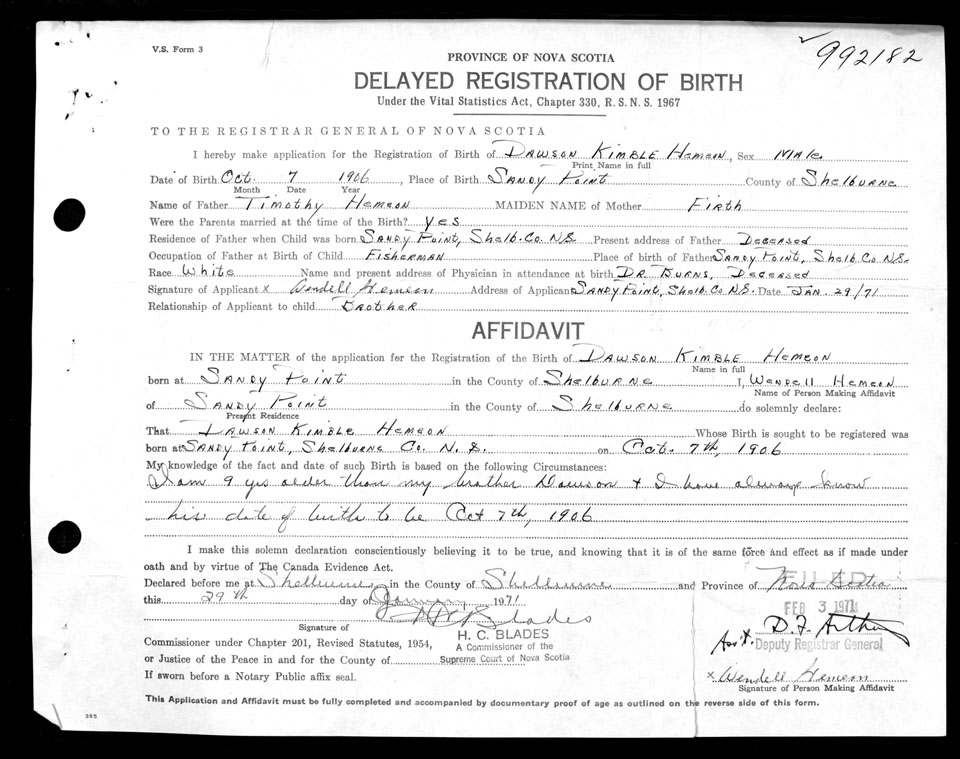 V.S. Form 3
992182
PROVINCE OF NOVA SCOTIA
DELAYED REGISTRATION OF BIRTH
Under the Vital Statistics Act, Chapter 330, R. S. N. S. 1967
TO THE REGISTRAR GENERAL OF NOVA SCOTIA
I hereby make application for the Registration of Birth of Dawson Kimble Hemeon, Sex Male
Print Name in full
Date of Birth Oct. 7 1906, Place of Birth Sandy Point County of Shelburne
Month Date Year
Name of Father Timothy Hemeon MAIDEN NAME of Mother Firth
Were the Parents married at the time of the Birth? Yes
Residence of Father when Child was born Sandy Point, Shelb. Co. N.S. Present address of Father Deceased
Occupation of Father at Birth of Child Fisherman Place of birth of Father Sandy Point, Shelb. Co. N.S.
Race White Name and present address of Physician in attendance at birth Dr Burns, Deceased
Signature of Applicant x Wendell Hemeon Address of Applicant Sandy Point, Shelb. Co N.S. Date Jan. 29/71
Relationship of Applicant to child Brother
AFFIDAVIT
IN THE MATTER of the application for the Registration of the Birth of Dawson Kimble Hemeon
Name in full
born at Sandy Point in the County of Shelburne I, Wendell Hemeon
Name of Person Making Affidavit
of Sandy Point in the County of Shelburne do solemnly declare:
Present Residence
That Dawson Kimble Hemeon Whose Birth is sought to be registered was
born at Sandy Point, Shelburne Co. N.S. on Oct. 7th, 1906
My knowledge of the fact and date of such Birth is based on the following Circumstances:
I am 9 yrs older than my brother Dawson + I have always know
his date of birth to be Oct 7th, 1906
I make this solemn declaration conscientiously believing it to be true, and knowing that it is of the same force and effect as if made under
oath and by virtue of The Canada Evidence Act.
Declared before me at Shelburne in the County of Shelburne and Province of Nova Scotia
FILED
this 29th day of January 1971
FEB 3 1971
H C Blades
Signature of
H. C. BLADES
D. F. Arthur
Commissioner under Chapter 201, Revised Statutes, 1954,
A Commissioner of the
Asst. Deputy Registrar General
or Justice of the Peace in and for the County of
Supreme Court of Nova Scotia
If sworn before a Notary Public affix seal.
x Wendell Hemeon
Signature of Person Making Affidavit
This Application and Affidavit must be fully completed and accompanied by documentary proof of age as outlined on the reverse side of this form.
385